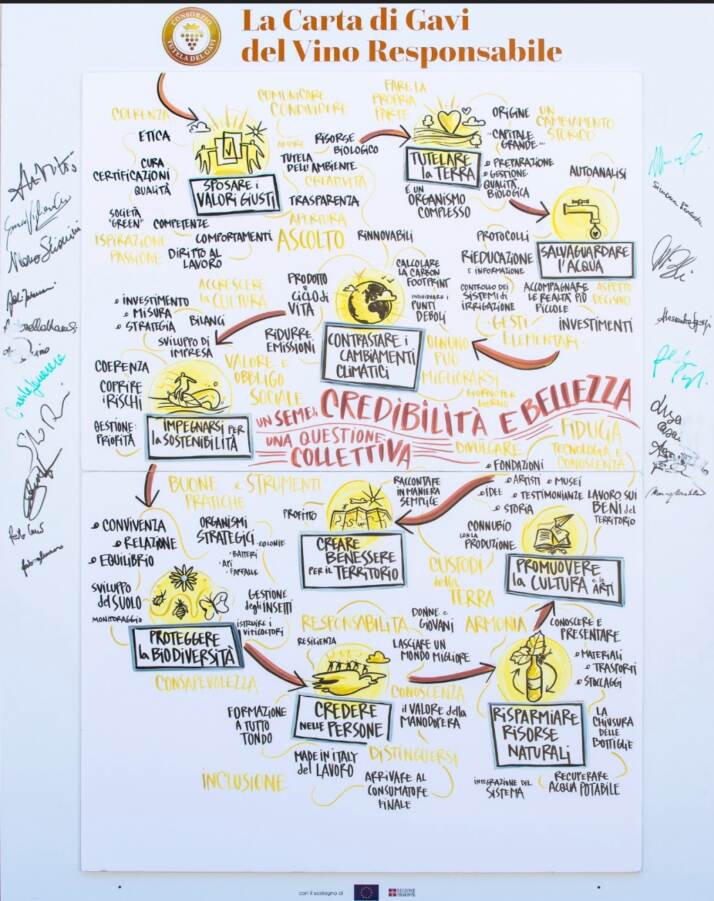 CONSORZIO
TUTELA DEL GAVI
La Carta di Gavi
del Vino Responsabile
COERENZA
ETICA
CURA
CERTIFICAZIONI
QUALITÀ
SOCIETÀ
"GREEN"
COMPETENZE
ISPIRAZIONE
PASSIONE
COMPORTAMENTI
DIRITTO AL
LAVORO
SPOSARE i
VALORI GIUSTI
COMUNICARE
CONDIVIDERE
AMORE
RISORSE
BIOLOGICO
TUTELA
DELL'AMBIENTE
CREATIVITÀ
TRASPARENZA
APERTURA
ASCOLTO
RINNOVABILI
FARE LA
PROPRIA
PARTE
TUTELARE
la TERRA
È UN
ORGANISMO
COMPLESSO
ORIGINE
"CAPITALE
GRANDE"
UN
CAMBIAMENTO
STORICO
PREPARAZIONE
GESTIONE
QUALITÀ
BIOLOGICA
AUTOANALISI
SALVAGUARDARE
L'ACQUA
PROTOCOLLI
RIEDUCAZIONE
E INFORMAZIONE
CONTROLLO DEI
SISTEMI DI
IRRIGAZIONE
ACCOMPAGNARE
LE REALTÀ PIÙ
PICCOLE
ASPETTO
DECISIVO
INVESTIMENTI
GESTI
ELEMENTARI
OGNUNO
PUÒ
MIGLIORARSI
GIORNO PER
GIORNO
CALCOLARE
LA CARBON
FOOTPRINT
INDIVIDUARE I
PUNTI
DEBOLI
PRODOTTO
CICLO di
VITA
RIDURRE
EMISSIONI
CONTRASTARE i
CAMBIAMENTI
CLIMATICI
ACCRESCERE
la CULTURA
INVESTIMENTO
MISURA
STRATEGIA
BILANCI
SVILUPPO DI
IMPRESA
VALORE E
OBBLIGO
SOCIALE
COERENZA
COPRIRE
i RISCHI
GESTIONE:
PRIORITÀ
IMPEGNARSI PER
la SOSTENIBILITÀ
UN SEME di CREDIBILITÀ E BELLEZZA
UNA QUESTIONE
COLLETTIVA
FIDUCIA
TECNOLOGIA E
CONOSCENZA
DIVULGARE
FONDAZIONI
ARTISTI
MUSEI
IDEE
TESTIMONIANZE
STORIA
LAVORO SUI
BENI del
TERRITORIO
CONNUBIO
CON LA
PRODUZIONE
PROMUOVERE
la CULTURA e le ARTI
RACCONTARE
IN MANIERA
SEMPLICE
PROFITTO
CREARE
BENESSERE
PER IL TERRITORIO
CUSTODI
della
TERRA
BUONE
PRATICHE
E STRUMENTI
CONVIVENZA
RELAZIONE
EQUILIBRIO
ORGANISMI
STRATEGICI
COLONIE
BATTERI
API
FARFALLE
SVILUPPO
del SUOLO
MONITORAGGIO
GESTIONE
degli INSETTI
ISTRUIRE i
VITICOLTORI
PROTEGGERE
la BIODIVERSITÀ
CONSAPEVOLEZZA
INCLUSIONE
RESPONSABILITÀ
RESILIENZA
DONNE e
GIOVANI
LASCIARE UN
MONDO MIGLIORE
CONOSCENZA
il VALORE della
MANODOPERA
CREDERE
NELLE PERSONE
FORMAZIONE
A TUTTO
TONDO
MADE IN ITALY
del LAVORO
DISTINGUERSI
ARRIVARE AL
CONSUMATORE
FINALE
ARMONIA
CONOSCERE E
PRESENTARE
MATERIALI
TRASPORTI
STOCCAGGI
RISPARMIARE
RISORSE
NATURALI
LA
CHIUSURA
DELLE
BOTTIGLIE
RECUPERARE
ACQUA POTABILE
INTEGRAZIONE DEL
SISTEMA
con il sostegno di
REGIONE
PIEMONTE